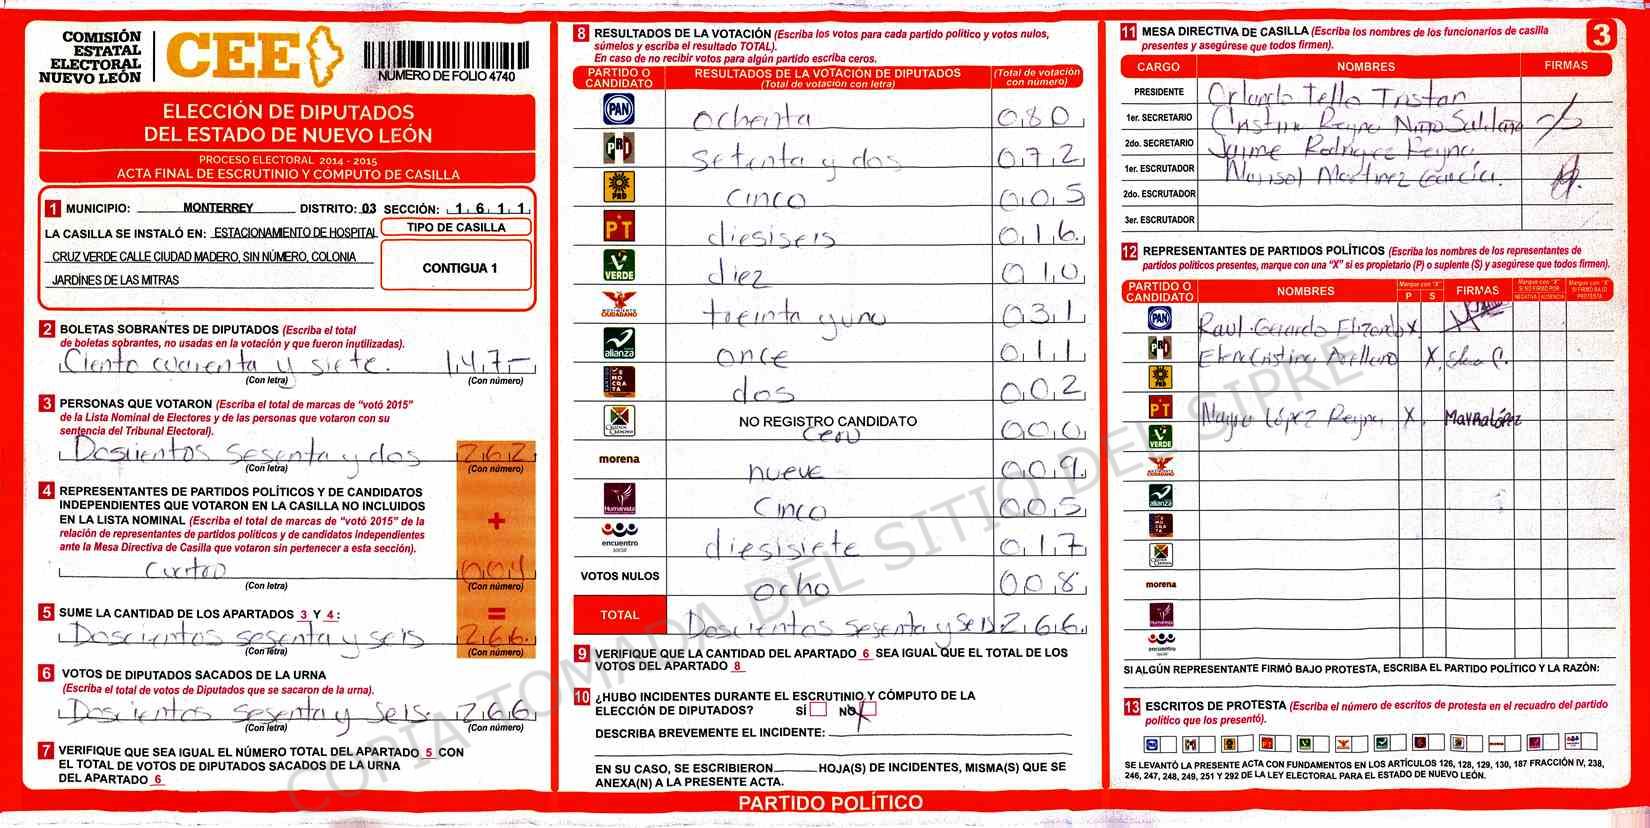 COMISIÓN
ESTATAL
ELECTORAL
NUEVO LEÓN
CEE
NÚMERO DE FOLIO 4740
ELECCIÓN DE DIPUTADOS
DEL ESTADO DE NUEVO LEÓN
PROCESO ELECTORAL 2014 - 2015
ACTA FINAL DE ESCRUTINIO Y CÓMPUTO DE CASILLA
1 MUNICIPIO: MONTERREY DISTRITO: 03 SECCIÓN: 1 6 1 1
LA CASILLA SE INSTALÓ EN: ESTACIONAMIENTO DE HOSPITAL
CRUZ VERDE CALLE CIUDAD MADERO, SIN NÚMERO, COLONIA
JARDÍNES DE LAS MITRAS
TIPO DE CASILLA
CONTIGUA 1
2 BOLETAS SOBRANTES DE DIPUTADOS (Escriba el total
de boletas sobrantes, no usadas en la votación y que fueron inutilizadas).
Ciento cuarenta y siete. 147-
(Con letra) (Con número)
3 PERSONAS QUE VOTARON (Escriba el total de marcas de "votó 2015"
de la Lista Nominal de Electores y de las personas que votaron con su
sentencia del Tribunal Electoral).
Dosientos sesenta y dos 262
(Con letra) (Con número)
4 REPRESENTANTES DE PARTIDOS POLÍTICOS Y DE CANDIDATOS
INDEPENDIENTES QUE VOTARON EN LA CASILLA NO INCLUIDOS
EN LA LISTA NOMINAL (Escriba el total de marcas de "votó 2015" de la
relación de representantes de partidos políticos y de candidatos independientes
ante la Mesa Directiva de Casilla que votaron sin pertenecer a esta sección).
+
cuatro 004
(Con letra) (Con número)
5 SUME LA CANTIDAD DE LOS APARTADOS 3 Y 4:
=
Doscientos sesenta y seis 266.
(Con letra) (Con número)
6 VOTOS DE DIPUTADOS SACADOS DE LA URNA
(Escriba el total de votos de Diputados que se sacaron de la urna).
Doscientos sesenta y seis. 266
(Con letra) (Con número)
7 VERIFIQUE QUE SEA IGUAL EL NÚMERO TOTAL DEL APARTADO 5 CON
EL TOTAL DE VOTOS DE DIPUTADOS SACADOS DE LA URNA
DEL APARTADO 6
8 RESULTADOS DE LA VOTACIÓN (Escriba los votos para cada partido político y votos nulos,
súmelos y escriba el resultado TOTAL).
En caso de no recibir votos para algún partido escriba ceros.
PARTIDO O CANDIDATO RESULTADOS DE LA VOTACIÓN DE DIPUTADOS (Total de votación con letra) (Total de votación con número)
PAN ochenta 080
PRI setenta y dos 072
PRD cinco 005
PT diesiseis 016
VERDE diez 010
MOVIMIENTO CIUDADANO treinta y uno 031
alianza once 011
DEMOCRATA dos 002
NO REGISTRO CANDIDATO
cero 000
morena nueve 009
Humanista cinco 005
encuentro social diesisiete 017
VOTOS NULOS ocho 008
TOTAL Doscientos sesenta y seis 266
9 VERIFIQUE QUE LA CANTIDAD DEL APARTADO 6 SEA IGUAL QUE EL TOTAL DE LOS
VOTOS DEL APARTADO 8
10 ¿HUBO INCIDENTES DURANTE EL ESCRUTINIO Y CÓMPUTO DE LA
ELECCIÓN DE DIPUTADOS? SÍ NO X
DESCRIBA BREVEMENTE EL INCIDENTE:
EN SU CASO, SE ESCRIBIERON HOJA(S) DE INCIDENTES, MISMA(S) QUE SE
ANEXA(N) A LA PRESENTE ACTA.
PARTIDO POLÍTICO
11 MESA DIRECTIVA DE CASILLA (Escriba los nombres de los funcionarios de casilla
presentes y asegúrese que todos firmen).
3
CARGO NOMBRES FIRMAS
PRESIDENTE Orlando Tello Tristan
1er. SECRETARIO Cristina Reyna Nino Saldaña
2do. SECRETARIO Jaime Rodriguez Reyna
1er. ESCRUTADOR Marisol Martinez García.
2do. ESCRUTADOR
3er. ESCRUTADOR
12 REPRESENTANTES DE PARTIDOS POLÍTICOS (Escriba los nombres de los representantes de
partidos políticos presentes, marque con una "X" si es propietario (P) o suplente (S) y asegúrese que todos firmen).
PARTIDO O CANDIDATO NOMBRES Marque con "X" P S FIRMAS Marque con "X" SI NO FIRMÓ POR NEGATIVA AUSENCIA Marque con "X" SI FIRMÓ BAJO PROTESTA
PAN Raul Gerardo Elizondo X
PRI Elena Cristina Arellano X Elena C.
PRD
PT Mayra López Reyna X Mayra López
VERDE
MOVIMIENTO CIUDADANO
alianza
morena
Humanista
encuentro social
SI ALGÚN REPRESENTANTE FIRMÓ BAJO PROTESTA, ESCRIBA EL PARTIDO POLÍTICO Y LA RAZÓN:
13 ESCRITOS DE PROTESTA (Escriba el número de escritos de protesta en el recuadro del partido
político que los presentó).
SE LEVANTÓ LA PRESENTE ACTA CON FUNDAMENTOS EN LOS ARTÍCULOS 126, 128, 129, 130, 187 FRACCIÓN IV, 238,
246, 247, 248, 249, 251 Y 292 DE LA LEY ELECTORAL PARA EL ESTADO DE NUEVO LEÓN.
COPIA TOMADA DEL SITIO DEL SIPRE